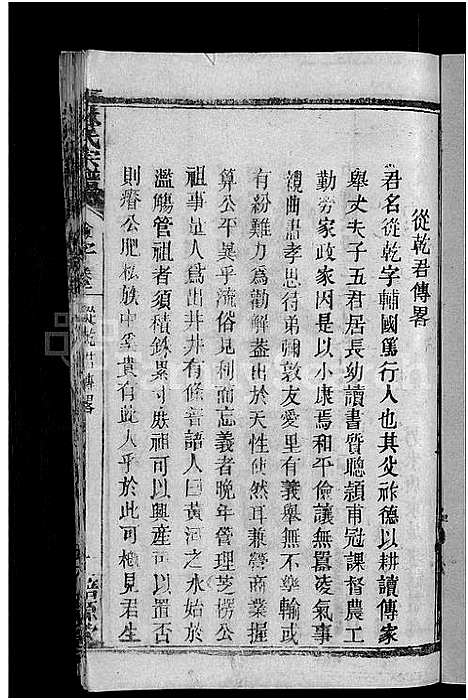 從乾君傳畧
君名從乾字輔國篤行人也其父祚德以耕讀傳家
舉丈夫子五君居長幼讀書質聰頴甫冠課督農工
勤勞家政家因是以小康焉和平儉讓無囂凌氣事
親曲盡孝思待弟彌敦友愛里有義舉無不樂輸或
有紛難力爲勸解盖出於天性使然耳兼營商業握
算公平異乎流俗見利而忘義者晚年管理芝楞公
祖事量入爲出井井有條嘗語人曰黃河之水始於
濫觴管祖者須積銖累寸族祖可以興產可以置否
則瘠公肥私族中奚貴有此人乎於此可想見君生
氏宗譜
從乾君傳畧